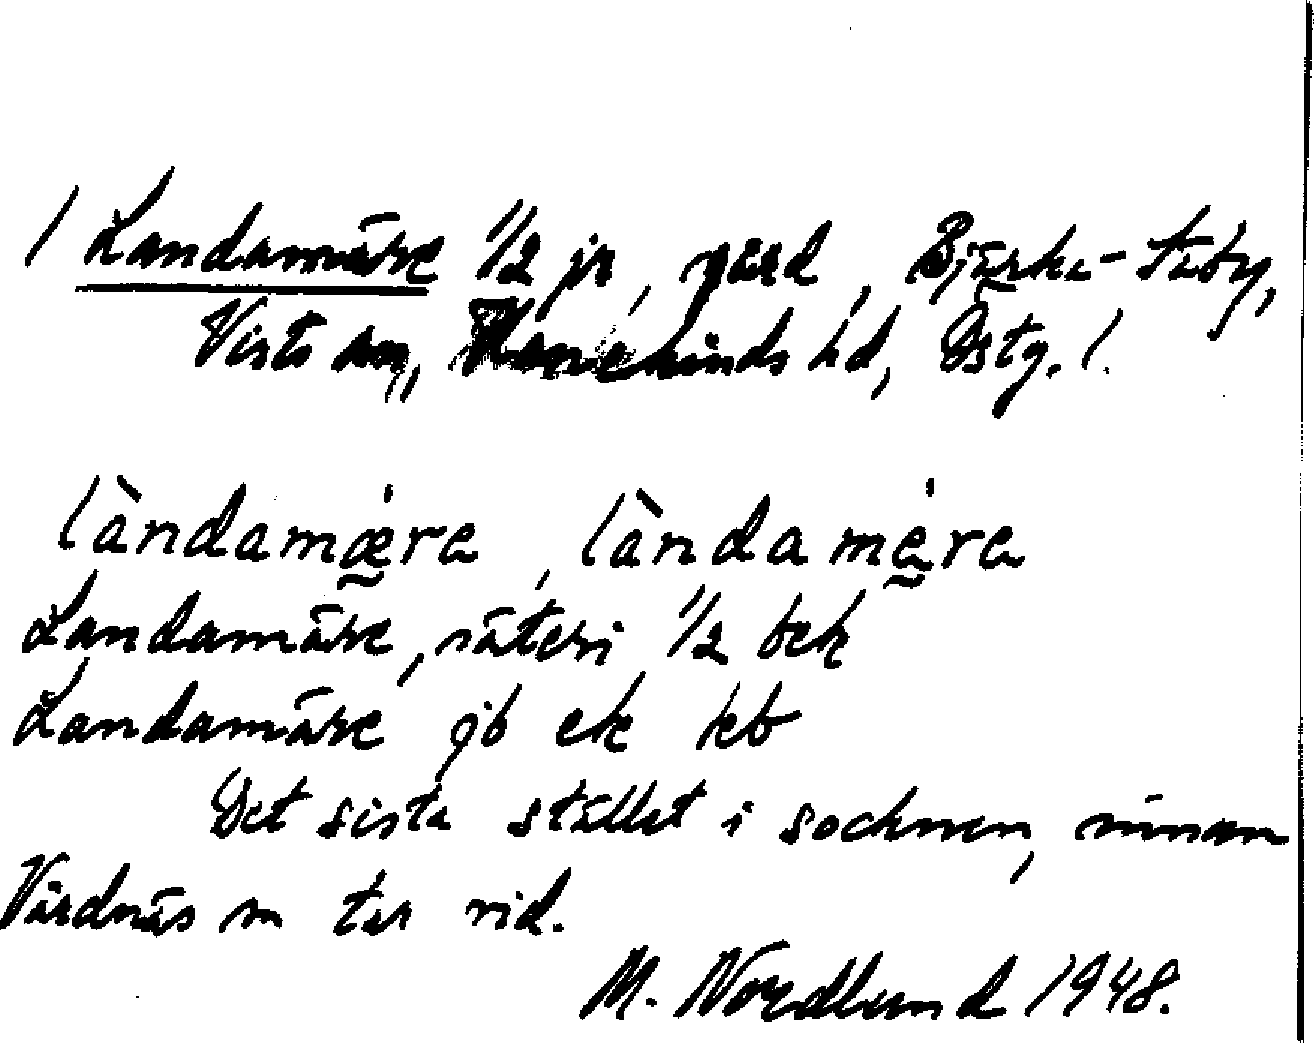 1 Landamäre 1/2 jr, gård, Bjärka-Säby,
Vist sn, Hanekinds hd, Östg. l.
làndamæ̀re, làndamère
Landamäre, säteri 1/2 bek
Landamäre jb ek kb
Det sista stället i socknen, innan
Vårdnäs sn tar vid.
M. Nordlund 1948.